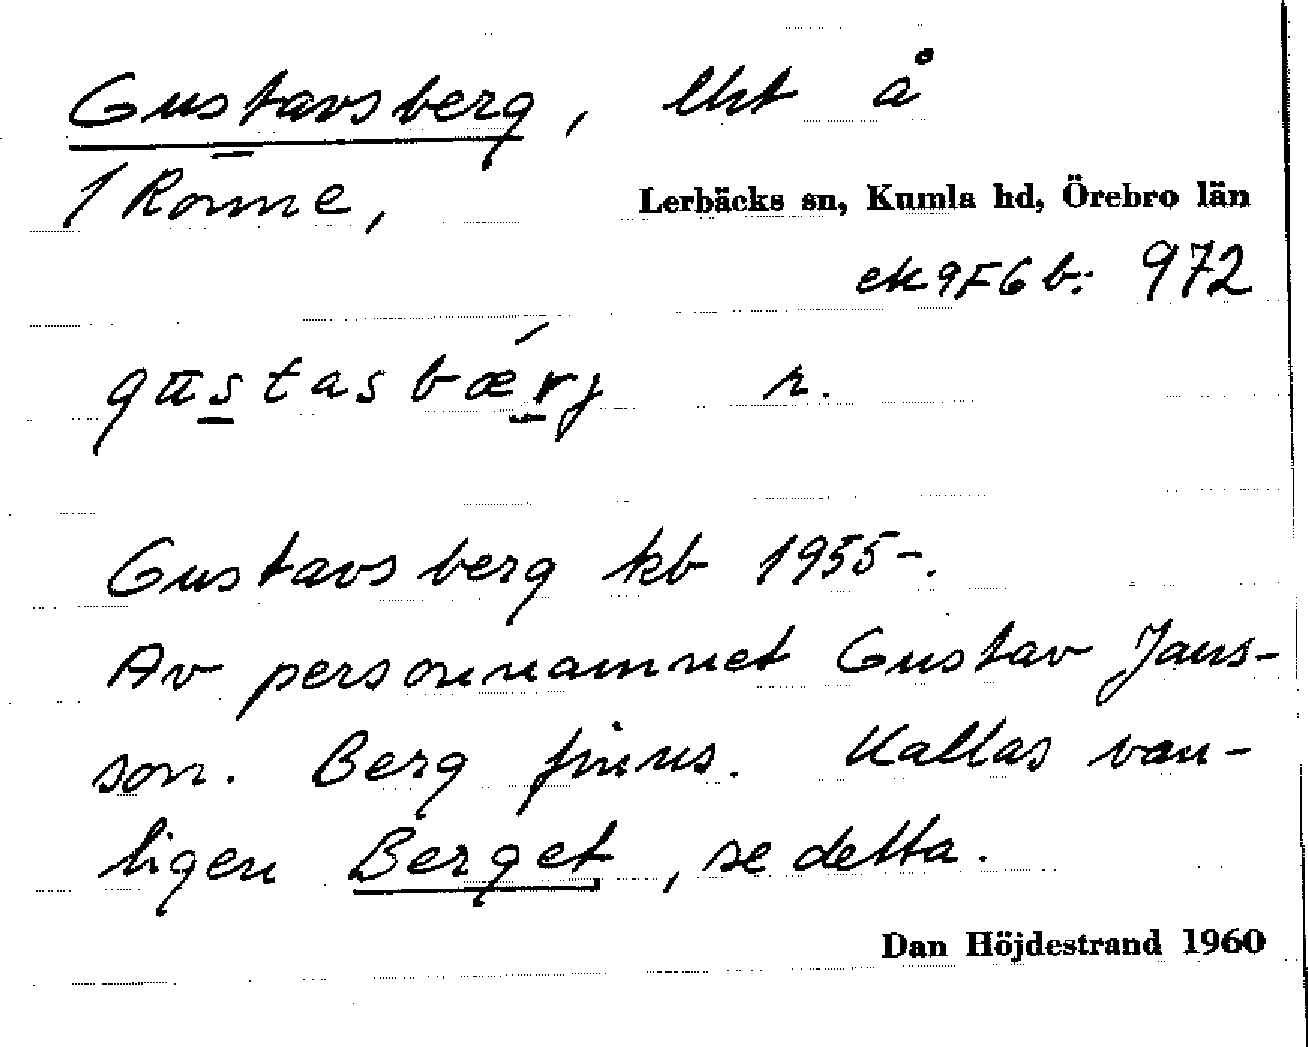 Gustavsberg, lht å
1 Rönne,
Lerbäcks sn, Kumla hd, Örebro län
ek 9F6b: 972
gustasbærj r.
Gustavsberg kb 1955-.
Av personnamnet Gustav Jans-
son. Berg finns. Kallas van-
ligen Berget, se detta.
Dan Höjdestrand 1960